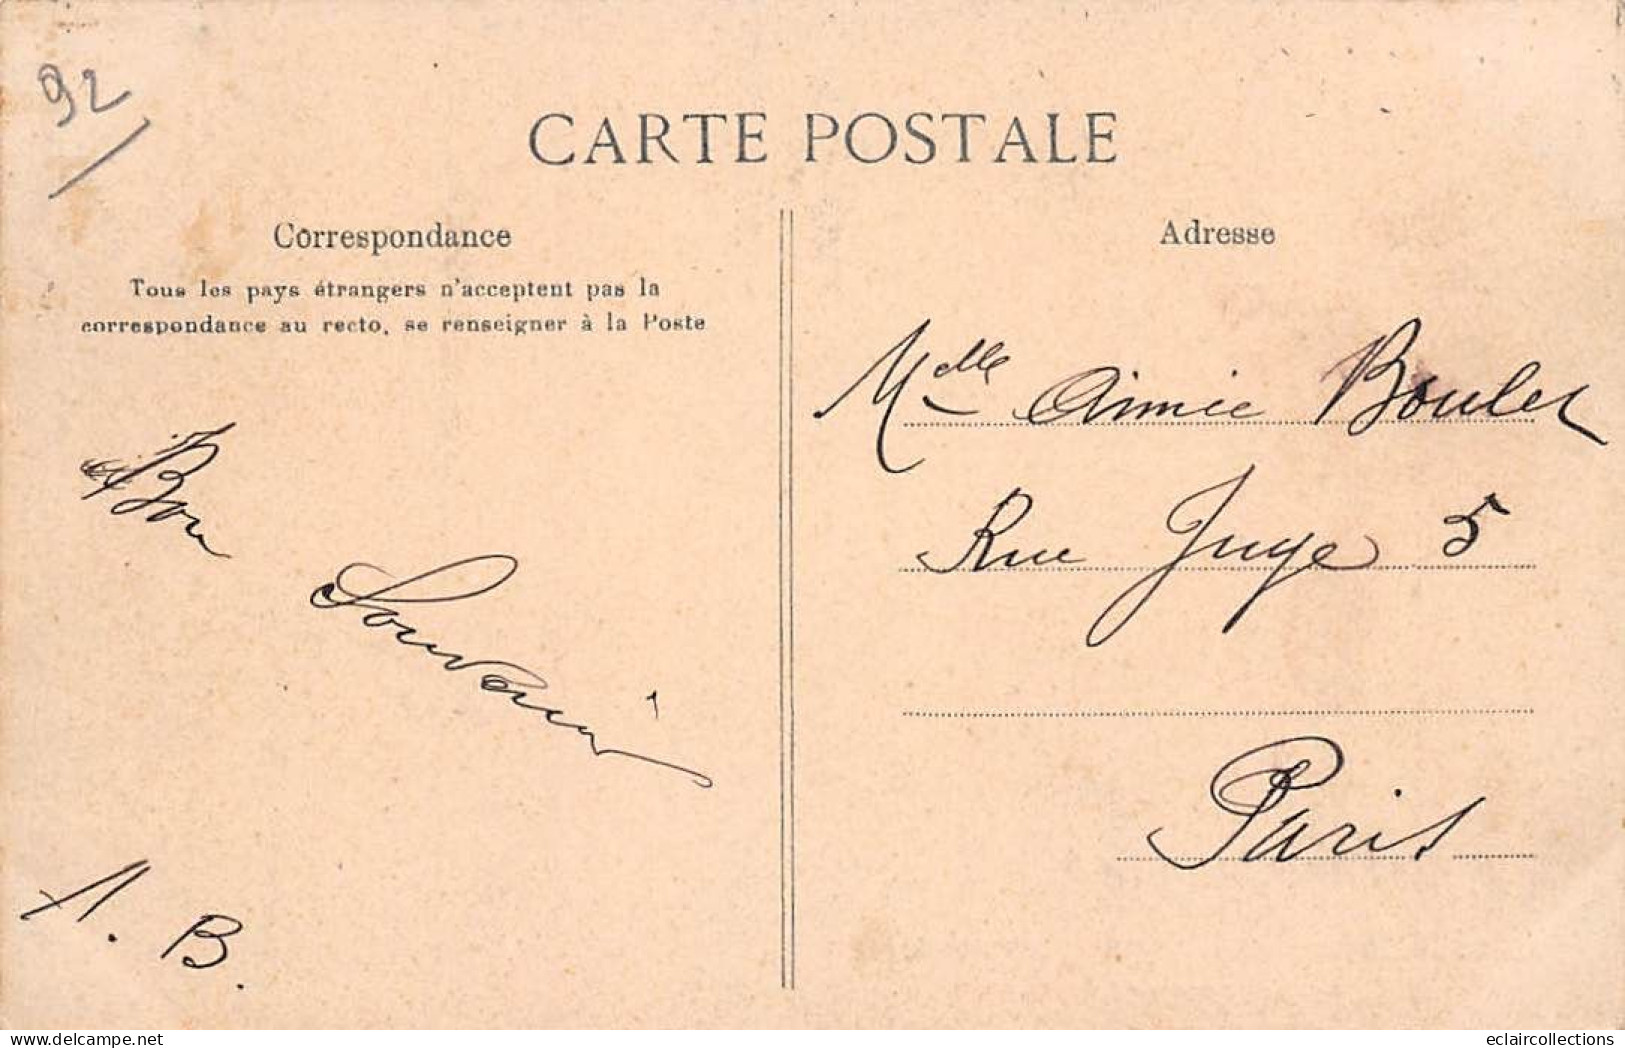 92
CARTE POSTALE
Correspondance
Tous les pays étrangers n'acceptent pas la
correspondance au recto, se renseigner à la Poste
Bon
Souvenir
A. B.
Adresse
Melle Aimée Boulet
Rue Juge 5
Paris
eclaircollections